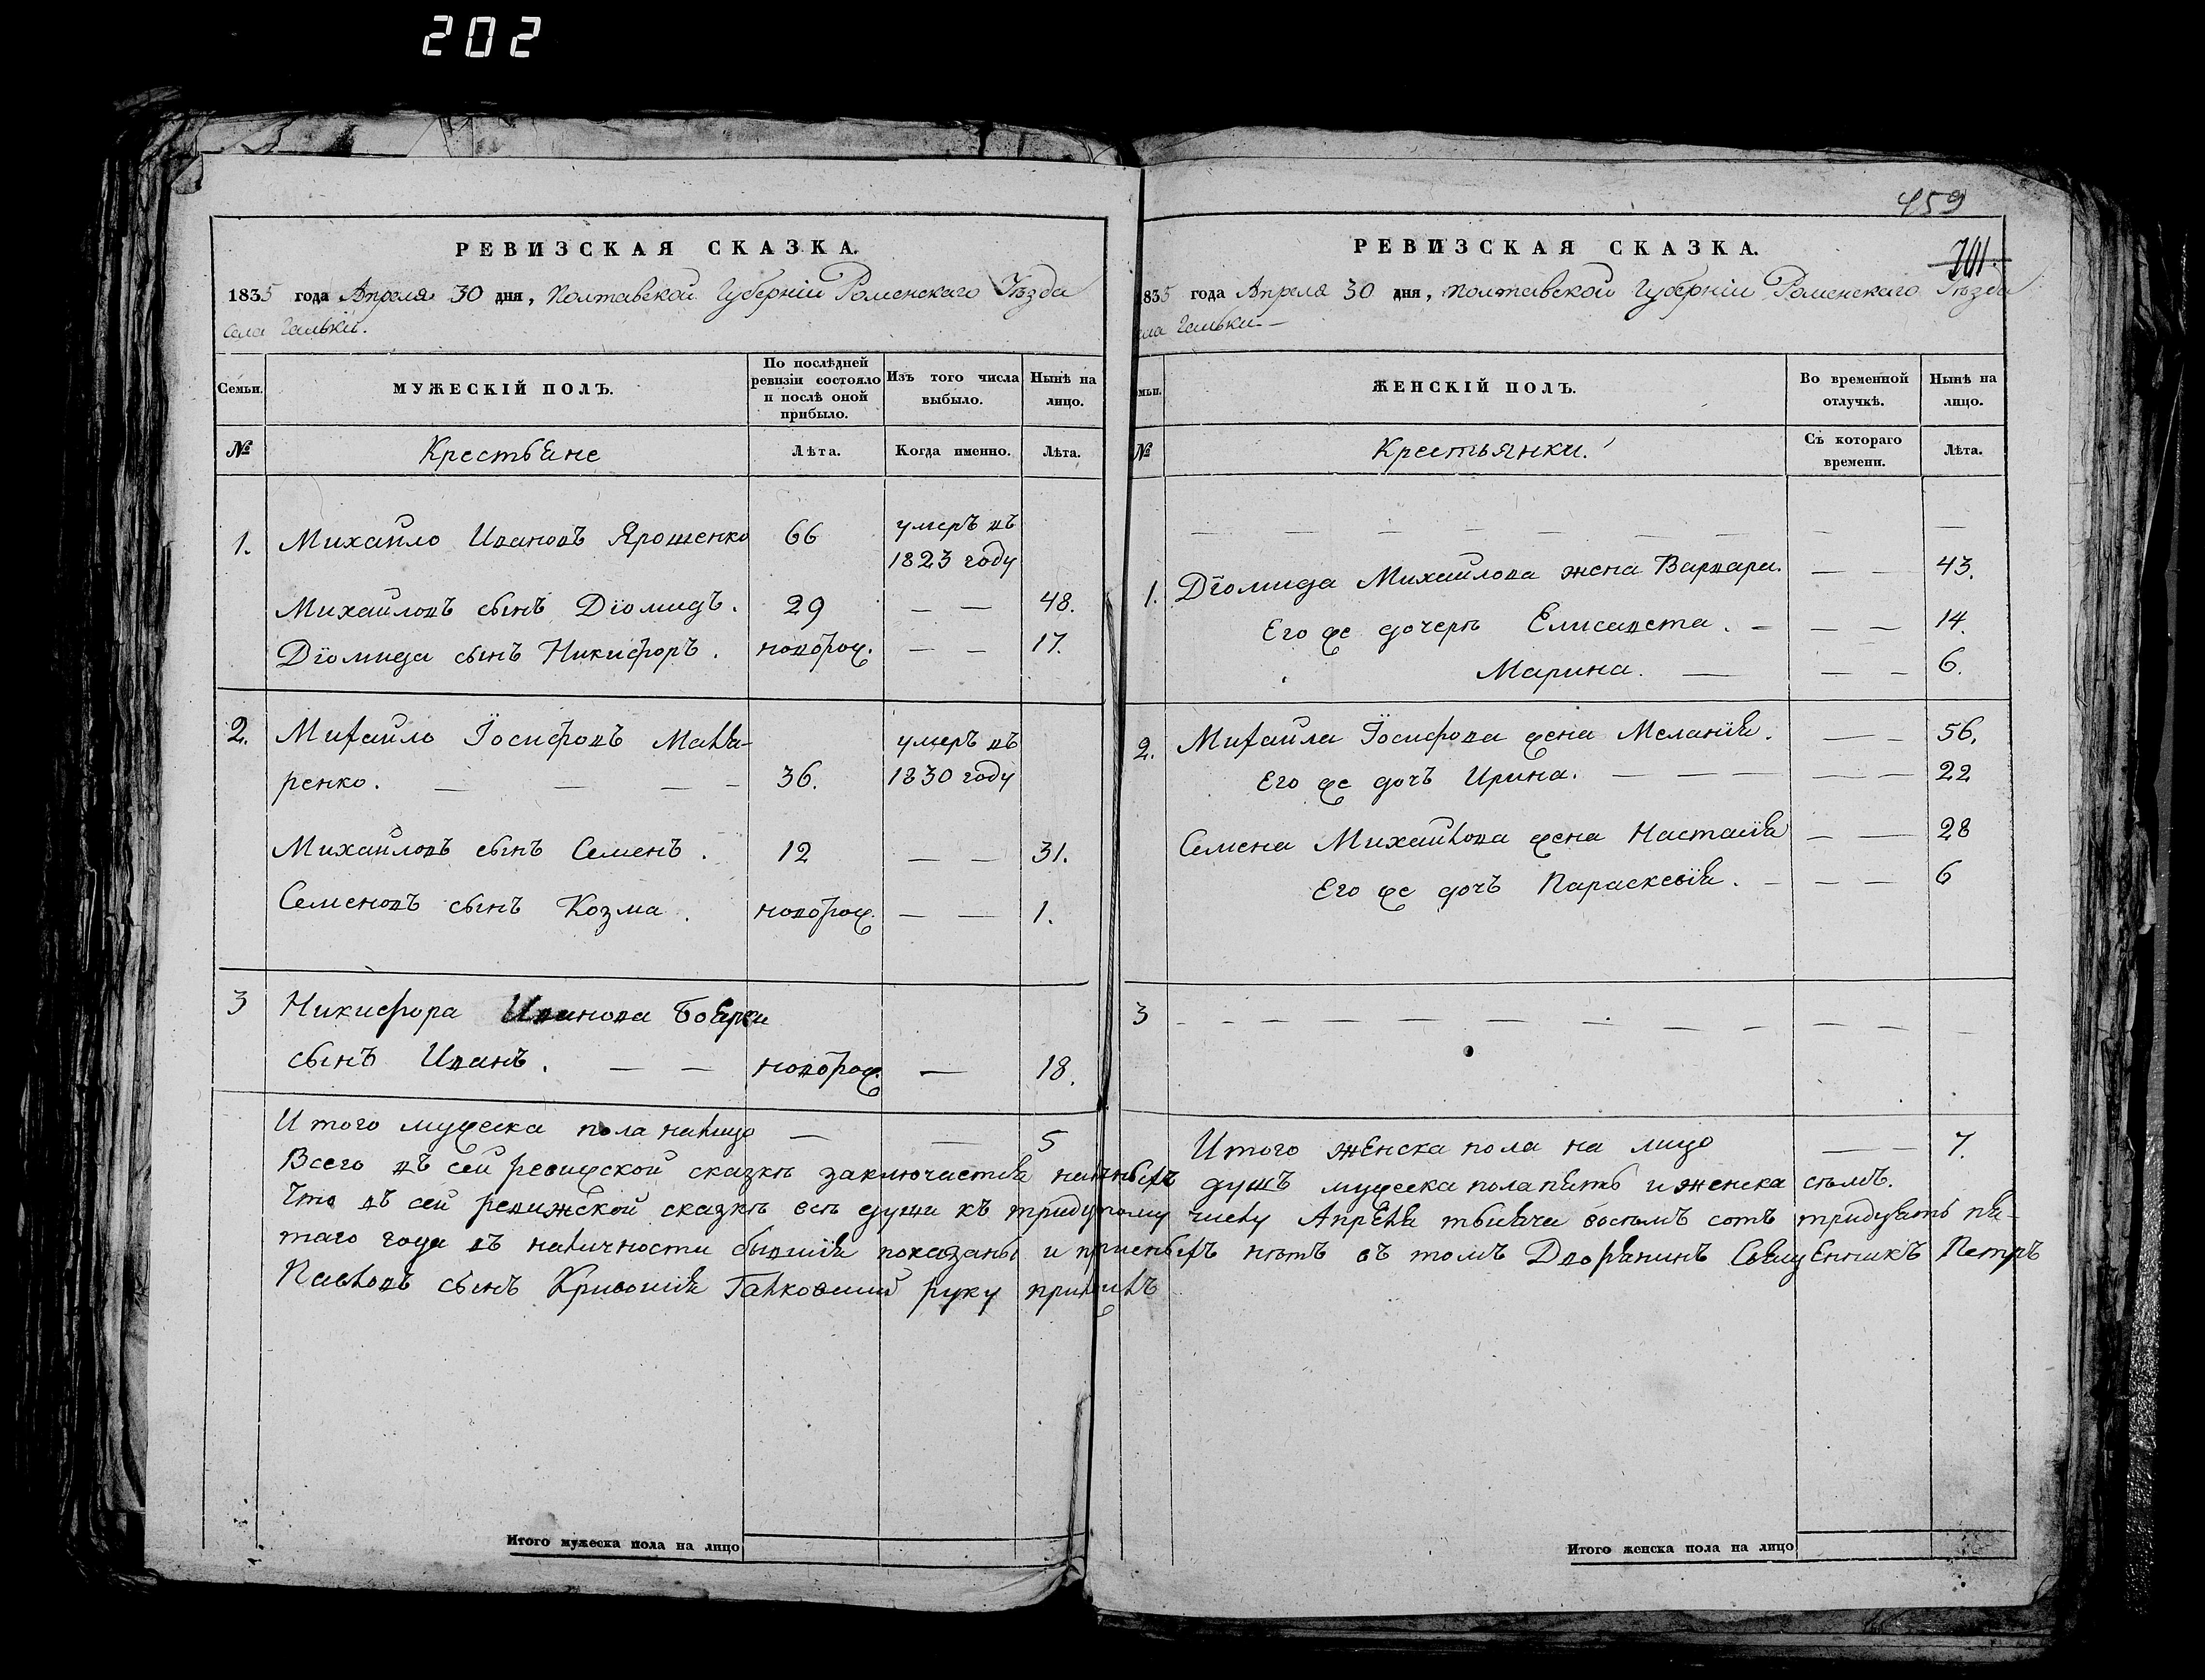 202
459
701.
РЕВИЗСКАЯ СКАЗКА.
1835 года Апреля 30 дня, Полтавской Губерніи Роменскаго Уѣзда
села Гамьки.
Семьи.
МУЖЕСКІЙ ПОЛЪ.
По послѣдней ревизіи состояло и послѣ оной прибыло.
Изъ того числа выбыло.
Нынѣ на лицо.
№
Крестьяне
Лѣта.
Когда именно.
Лѣта.
1. Михайло Ивановъ Ярошенко 66 умеръ въ
1823 году
Михайловъ сынъ Діомидъ. 29 — — 48.
Діомида сынъ Никифоръ. новорож. — — 17.
2. Михайло Іосифовъ Маля- умеръ въ
ренко. — — — — 36. 1830 году
Михайловъ сынъ Семенъ. 12 — — 31.
Семеновъ сынъ Козма. новорож. — — 1.
3 Никифора Иванова Боярки
сынъ Иванъ. — — новорож. — 18.
Итого мужеска пола налицо — — 5
РЕВИЗСКАЯ СКАЗКА.
1835 года Апреля 30 дня, Полтавской Губерніи Роменскаго Уѣзда
села Гамьки. —
мьи.
ЖЕНСКІЙ ПОЛЪ.
Во временной отлучкѣ.
Нынѣ на лицо.
№
Крестьянки.
Съ котораго времени.
Лѣта.
— — — — — — — — — —
1. Діомида Михайлова жена Варвара. — — 43.
Его же дочери Елисавета. — — — 14.
Марина. — — — 6.
2. Михайла Іосифова жена Меланія. — — 56.
Его же дочь Ирина. — — — — — 22
Семена Михайлова жена Настасія — — 28
Его же дочь Параскевія. — — — 6
3 — — — — — — — — — — — — —
Итого женска пола на лицо — — 7.
Всего въ сей ревижской сказкѣ заключается наличныхъ душъ мужеска пола пять и женска сѣмъ.
Что въ сей ревижской сказкѣ есѣ души къ тридцатому числу Апрѣля тысяча восѣмъ сотъ тридцать пя-
таго года въ наличности бывшія показаны и прописныхъ нѣтъ въ томъ Дворянинъ Священникъ Петръ
Павловъ сынъ руку приложилъ
Итого мужеска пола на лицо
Итого женска пола на лицо